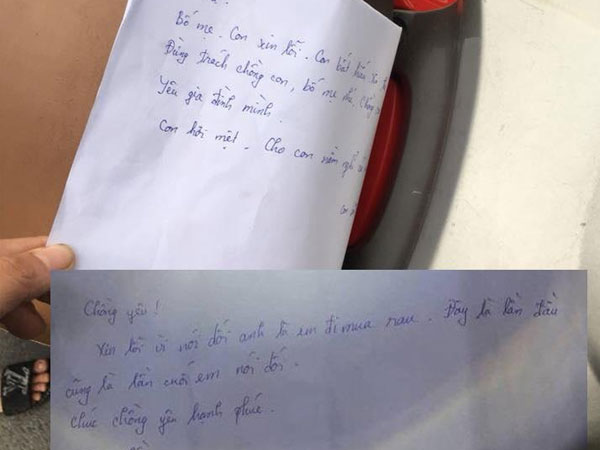 Bố mẹ. Con xin lỗi. Con bất hiếu
Đừng trách chồng con, bố mẹ
Yêu gia đình mình.
Con hơi mệt. Cho con nằm nghỉ
Chồng yêu!
Xin lỗi vì nói dối anh là em đi mua rau. Đây là lần đầu
cũng là lần cuối em nói dối.
chúc chồng yêu hạnh phúc.